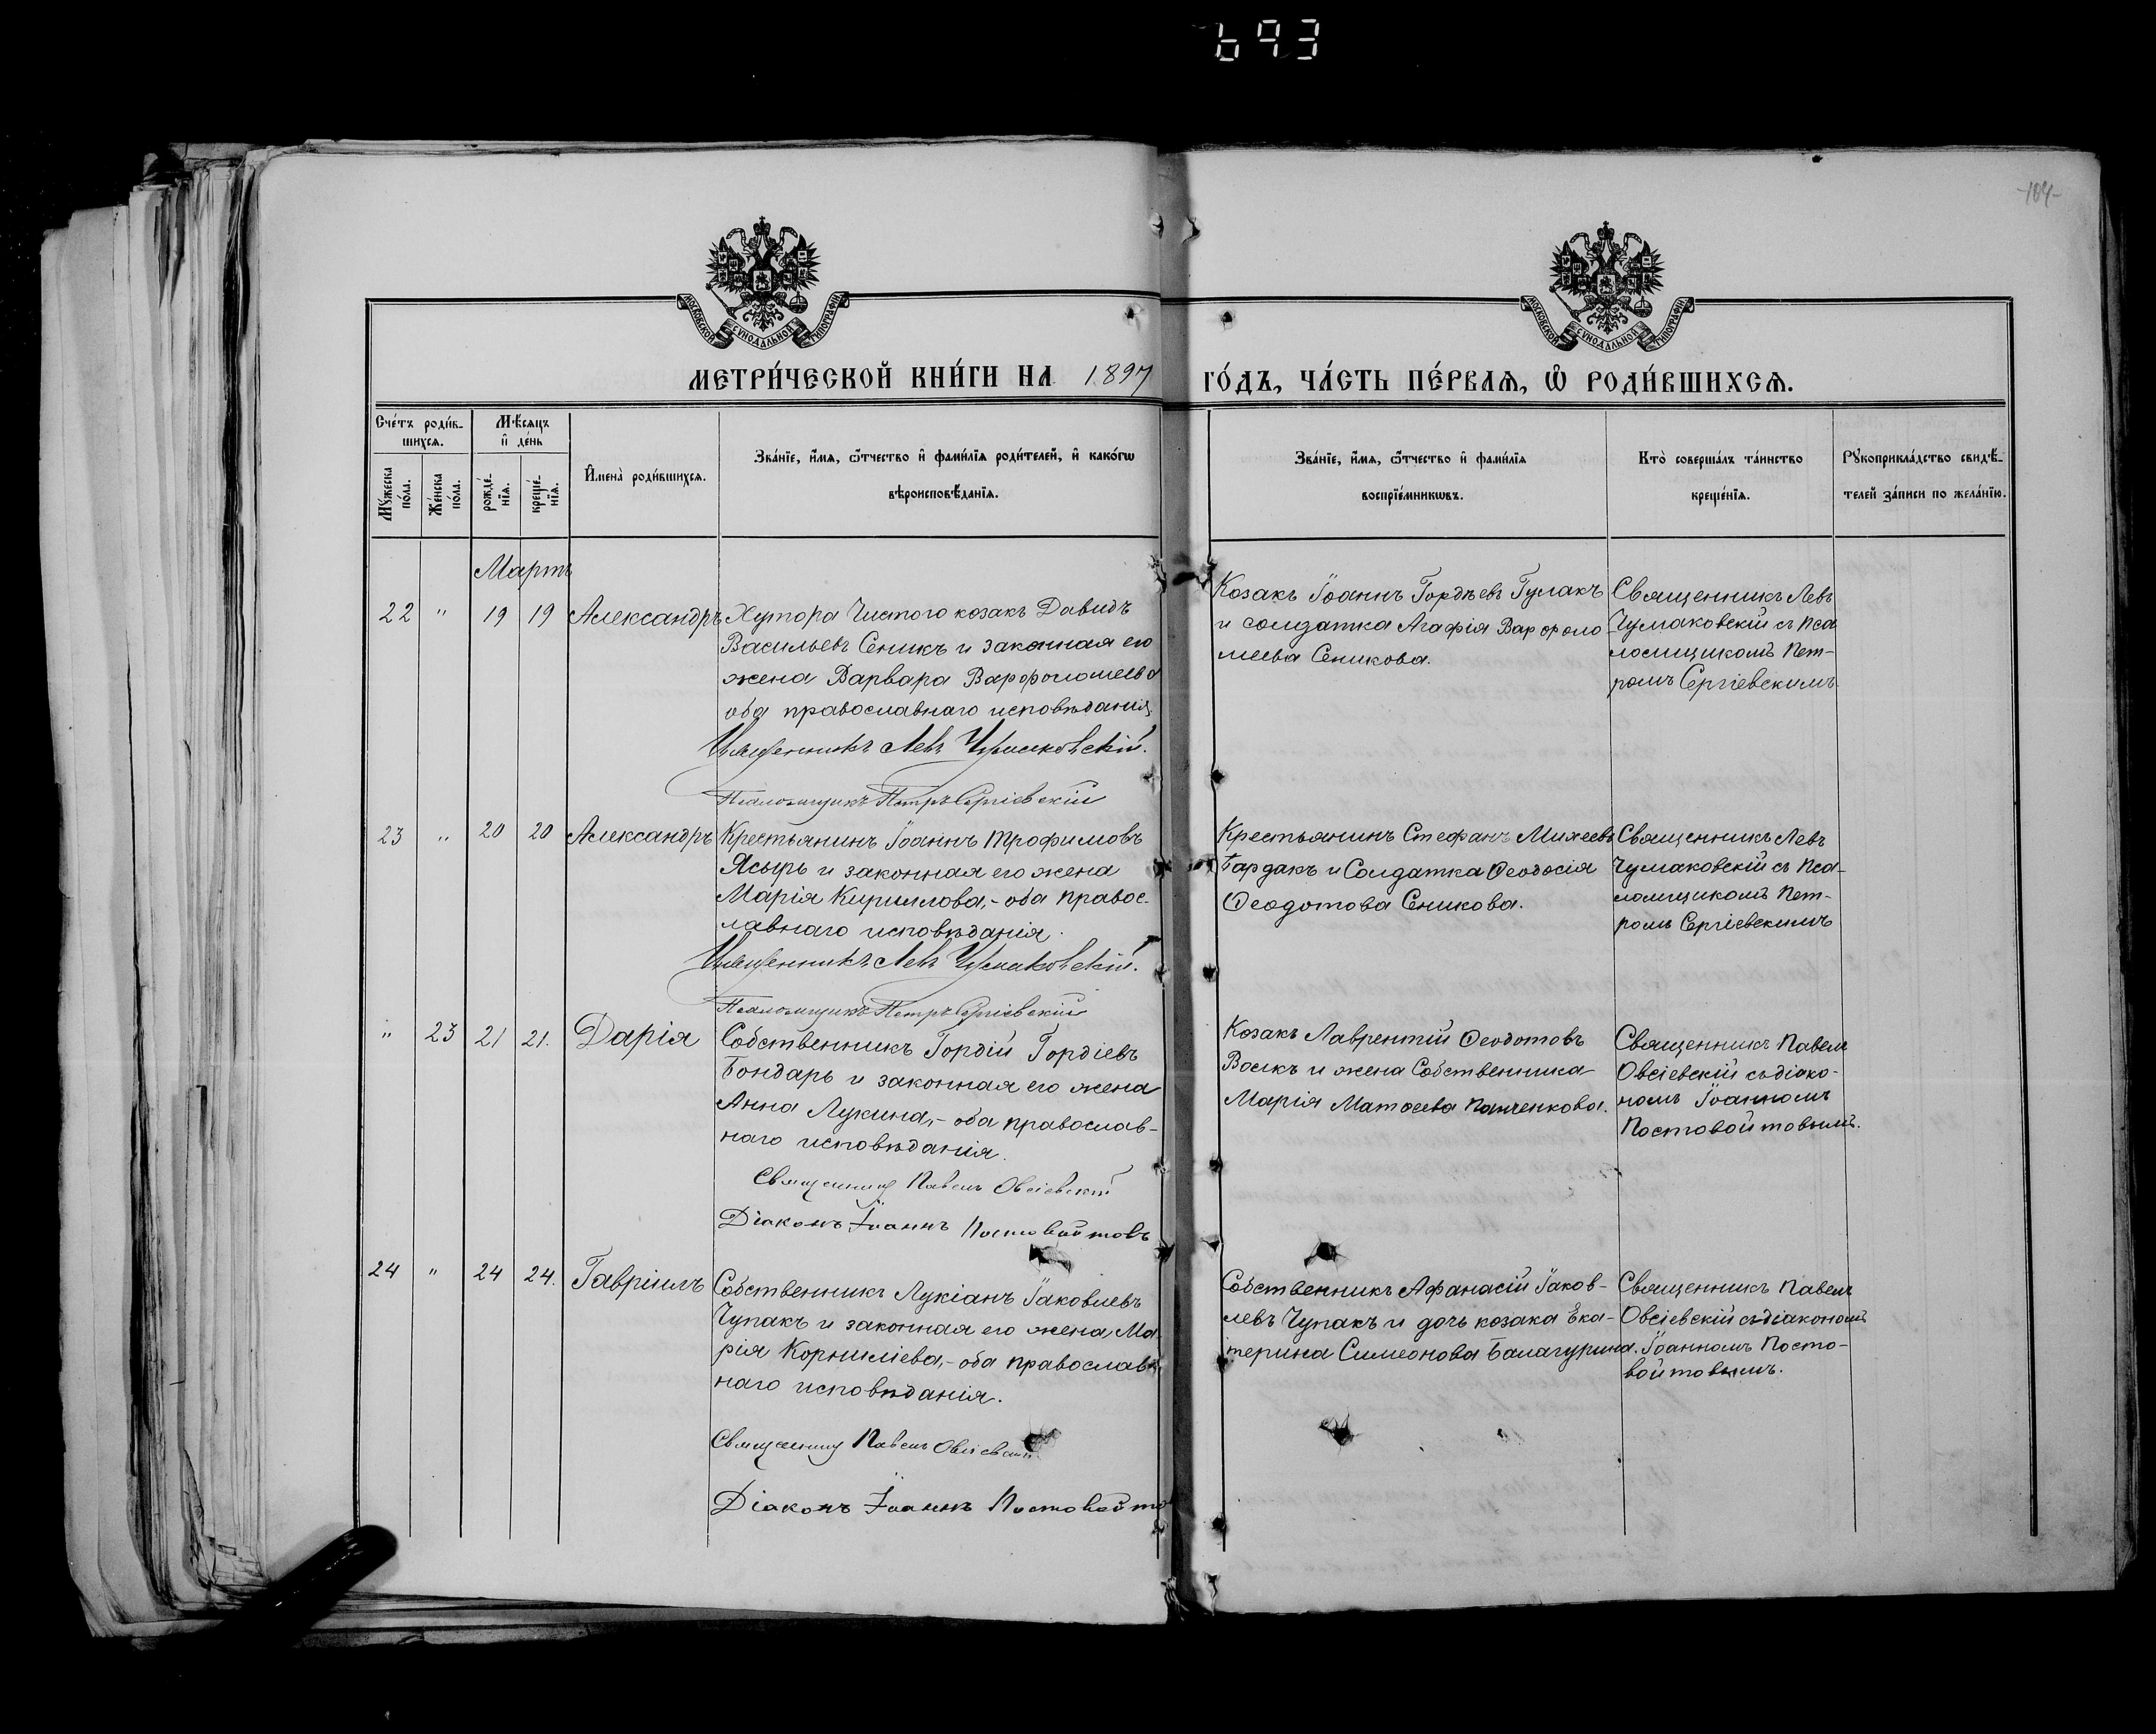 693
-104-
МОСКОВСКОЙ СѴНОДАЛЬНОЙ ТИПОГРАФІИ
МОСКОВСКОЙ СѴНОДАЛЬНОЙ ТИПОГРАФІИ
МЕТРИ́ЧЕСКОЙ КНИ́ГИ НА 1897 ГО́ДЪ, ЧА́СТЬ ПЕ́РВАѦ, Ѡ҆ РОДИ́ВШИХСѦ.
Сче́тъ роди́в-
шихсѧ.
Мѣ́сѧцъ
и҆ де́нь
Мꙋ́жеска
по́ла.
Же́нска
по́ла.
рожде́-
нїѧ.
креще́-
нїѧ.
И҆мена̀ роди́вшихсѧ.
Зва́нїе, и҆́мѧ, ѻ҆́тчество и҆ фами́лїѧ роди́телей, и҆ како́гѡ
вѣроисповѣ́данїѧ.
Зва́нїе, и҆́мѧ, ѻ҆́тчество и҆ фами́лїѧ
воспрїе́мникѡвъ.
Кто̀ соверша́лъ та́инство
креще́нїѧ.
Рꙋкоприкла́дство свидѣ́-
телей за́писи по жела́нїю.
Мартъ
22 " 19 19 Александръ
Хутора Чистого козакъ Давидъ
Васильевъ Сеникъ и законная его
жена Варвара Варфоломеева
оба православнаго исповѣданія
Священникъ Левъ Чумаковскій.
Псаломщикъ Петръ Сергіевскій
Козакъ Іоаннъ Гордѣевъ Гулакъ
и солдатка Агафія Варфоло-
меева Сеникова.
Священникъ Левъ
Чумаковскій съ Пса
ломщикомъ Пет-
ромъ Сергіевскимъ.
23 " 20 20 Александръ
Крестьянинъ Іоаннъ Трофимовъ
Ясырь и законная его жена
Марія Кириллова,- оба правос-
лавнаго исповѣданія.
Священникъ Левъ Чумаковскій.
Псаломщикъ Петръ Сергіевскій
Крестьянинъ Стефанъ Михеевъ
Бардакъ и Солдатка Ѳеодосія
Ѳеодотова Сеникова.
Священникъ Левъ
Чумаковскій съ Пса-
ломщикомъ Пет-
ромъ Сергіевскимъ
" 23 21 21. Дарія
Собственникъ Гордій Гордіевъ
Бондарь и законная его жена
Анна Лукина,- оба православ-
наго исповѣданія.
Священникъ Павелъ Овсіевскій
Діаконъ Іоаннъ Постовойтовъ
Козакъ Лаврентій Ѳеодотовъ
Воскъ и жена Собственника
Марія Матѳеева Панченкова.
Священникъ Павелъ
Овсіевскій съ діако-
номъ Іоанномъ
Постовойтовымъ.
24 " 24 24. Гавріилъ
Собственникъ Лукіанъ Іаковлевъ
Чупакъ и законная его жена Ма-
рія Корниліева,- оба православ-
наго исповѣданія.
Священникъ Павелъ Овсіевскій
Діаконъ Іоаннъ Постовойто
Собственникъ Афанасій Іаков-
левъ Чупакъ и дочь козака Ека-
терина Симеонова Балагурина.
Священникъ Павелъ
Овсіевскій съ діакономъ
Іоанномъ Посто-
войтовымъ.